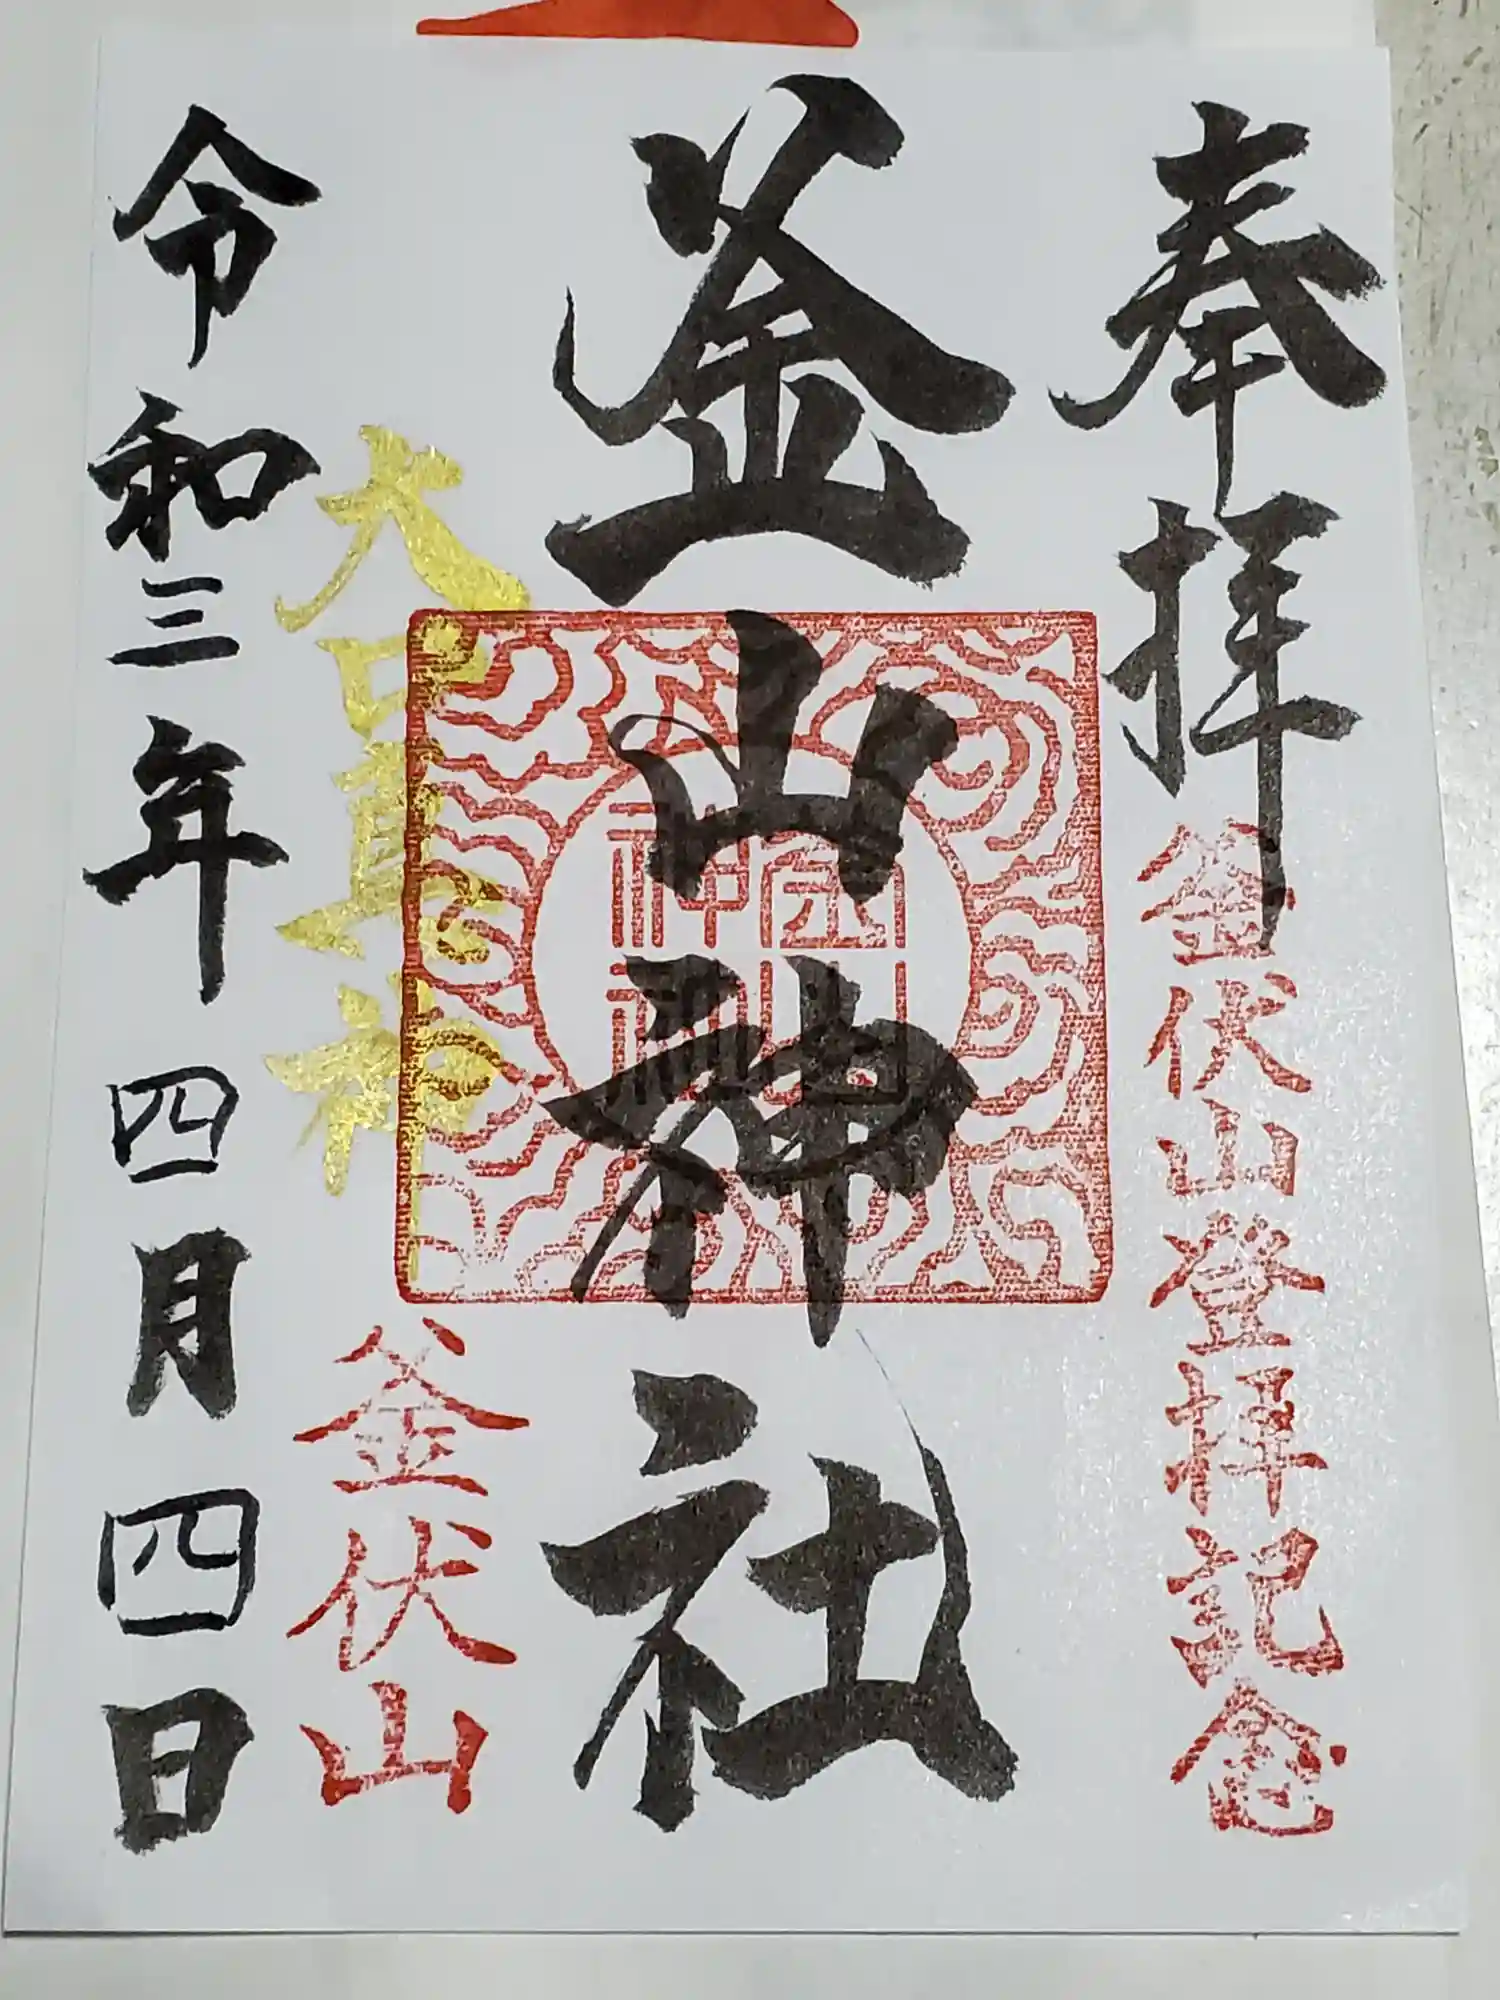 奉拝
釜伏山登拝記念
釜山神社
大口真神
釜伏山
令和三年四月四日